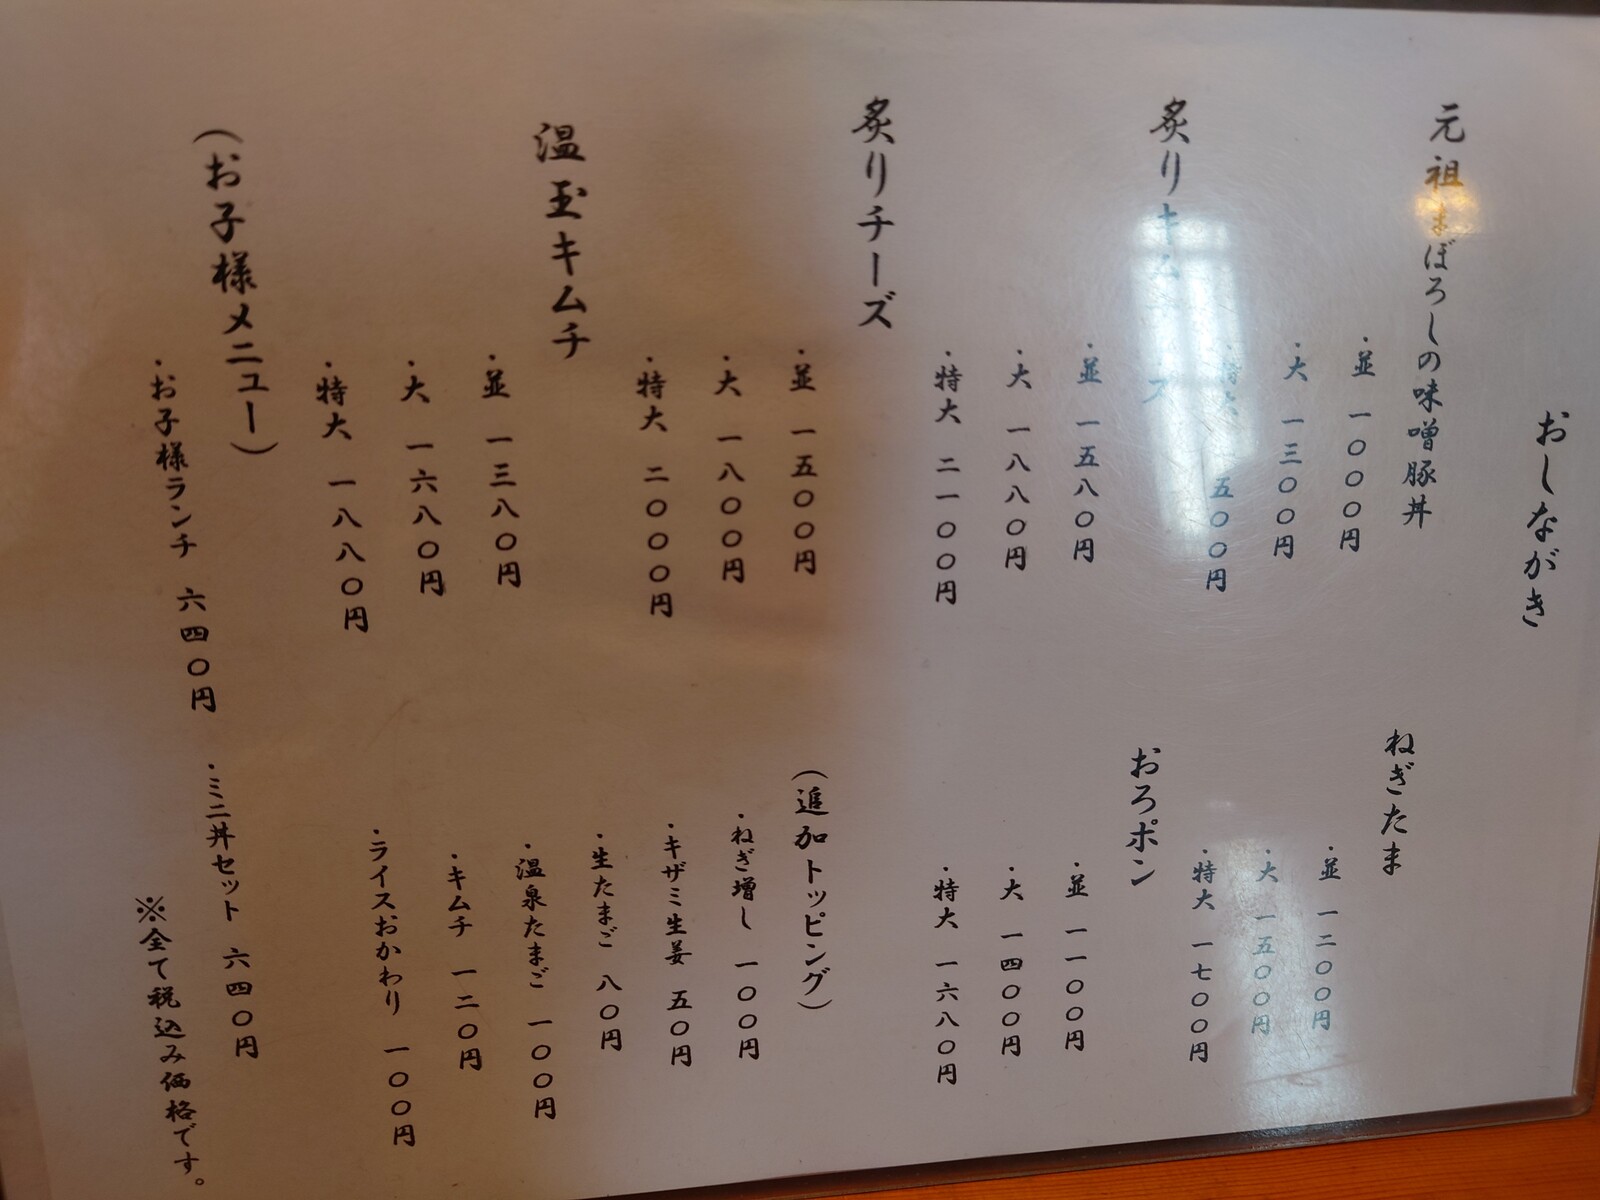 おしながき
元祖まぼろしの味噌豚丼
・並 一〇〇〇円
・大 一三〇〇円
・特大 五〇〇円
ねぎたま
・並 一二〇〇円
・大 一五〇〇円
・特大 一七〇〇円
炙りキム
・並 一五八〇円
・大 一八八〇円
・特大 二一〇〇円
おろポン
・並 一一〇〇円
・大 一四〇〇円
・特大 一六八〇円
炙りチーズ
・並 一五〇〇円
・大 一八〇〇円
・特大 二〇〇〇円
(追加トッピング)
・ねぎ増し 一〇〇円
・キザミ生姜 五〇円
・生たまご 八〇円
・温泉たまご 一〇〇円
・キムチ 一二〇円
・ライスおかわり 一〇〇円
温玉キムチ
・並 一三八〇円
・大 一六八〇円
・特大 一八八〇円
(お子様メニュー)
・お子様ランチ 六四〇円
・ミニ丼セット 六四〇円
※全て税込み価格です。